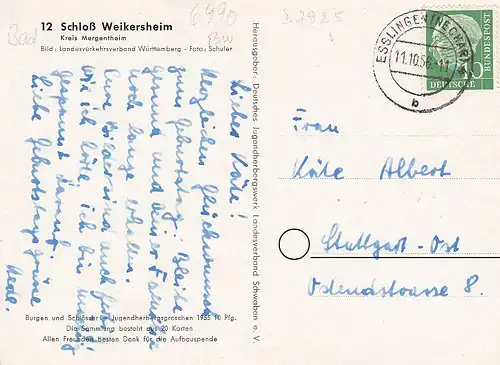 12 Schloß Weikersheim
Kreis Mergentheim
Bild: Landesverkehrsverband Württemberg - Foto: Schuler
Bad
6990
BW
Liebes Käte!
Herzlichen Glückwunsch
zum Geburtstag. Bleibe
gesund und deiner Familie
noch lange erhalten.
Eure Bilder sind auch fertig
wie ich höre, ich bin mächtig
gespannt darauf.
Liebe Geburtstagsgrüsse
Burgen und Schlösser - Jugendherbergsgroschen 1955 10 Pfg.
Die Sammlung besteht aus 20 Karten
Allen Freunden besten Dank für die Aufbauspende
Herausgeber: Deutsches Jugendherbergswerk Landesverband Schwaben e. V.
ESSLINGEN (NECKAR)
11.10.56
b
10
DEUTSCHE
BUNDESPOST
Frau
Käte Albert
Stuttgart-Ost
Ostendstrasse 8.